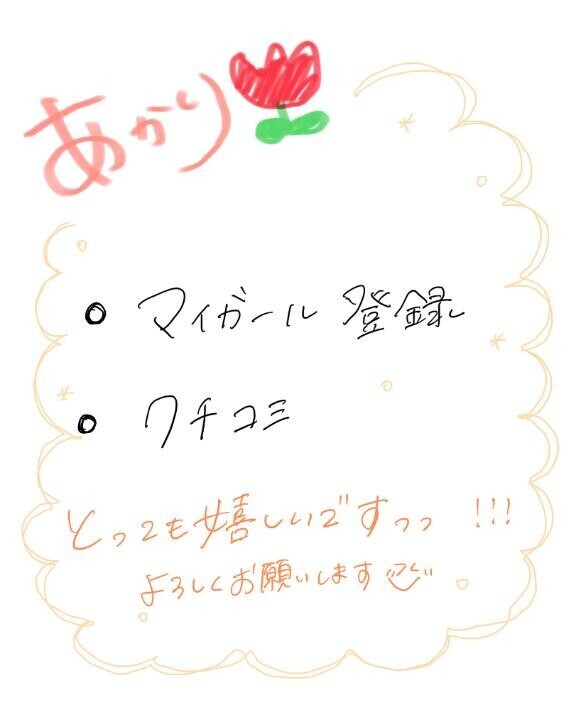 あかり
• マイガール登録
• クチコミ
とっても嬉しいですっっ!!!
よろしくお願いします